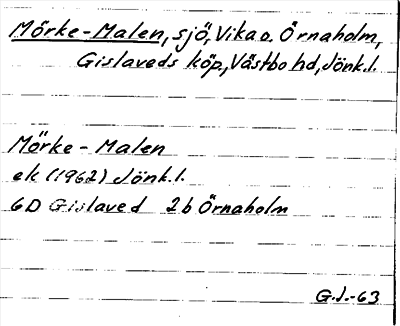 Mörke-Malen, sjö, Vika o. Örnaholm,
Gislaveds köp., Västbo hd, Jönk.l.
Mörke - Malen
ek (1962) Jönk.l.
6D Gislaved 2b Örnaholm
G.J.-63